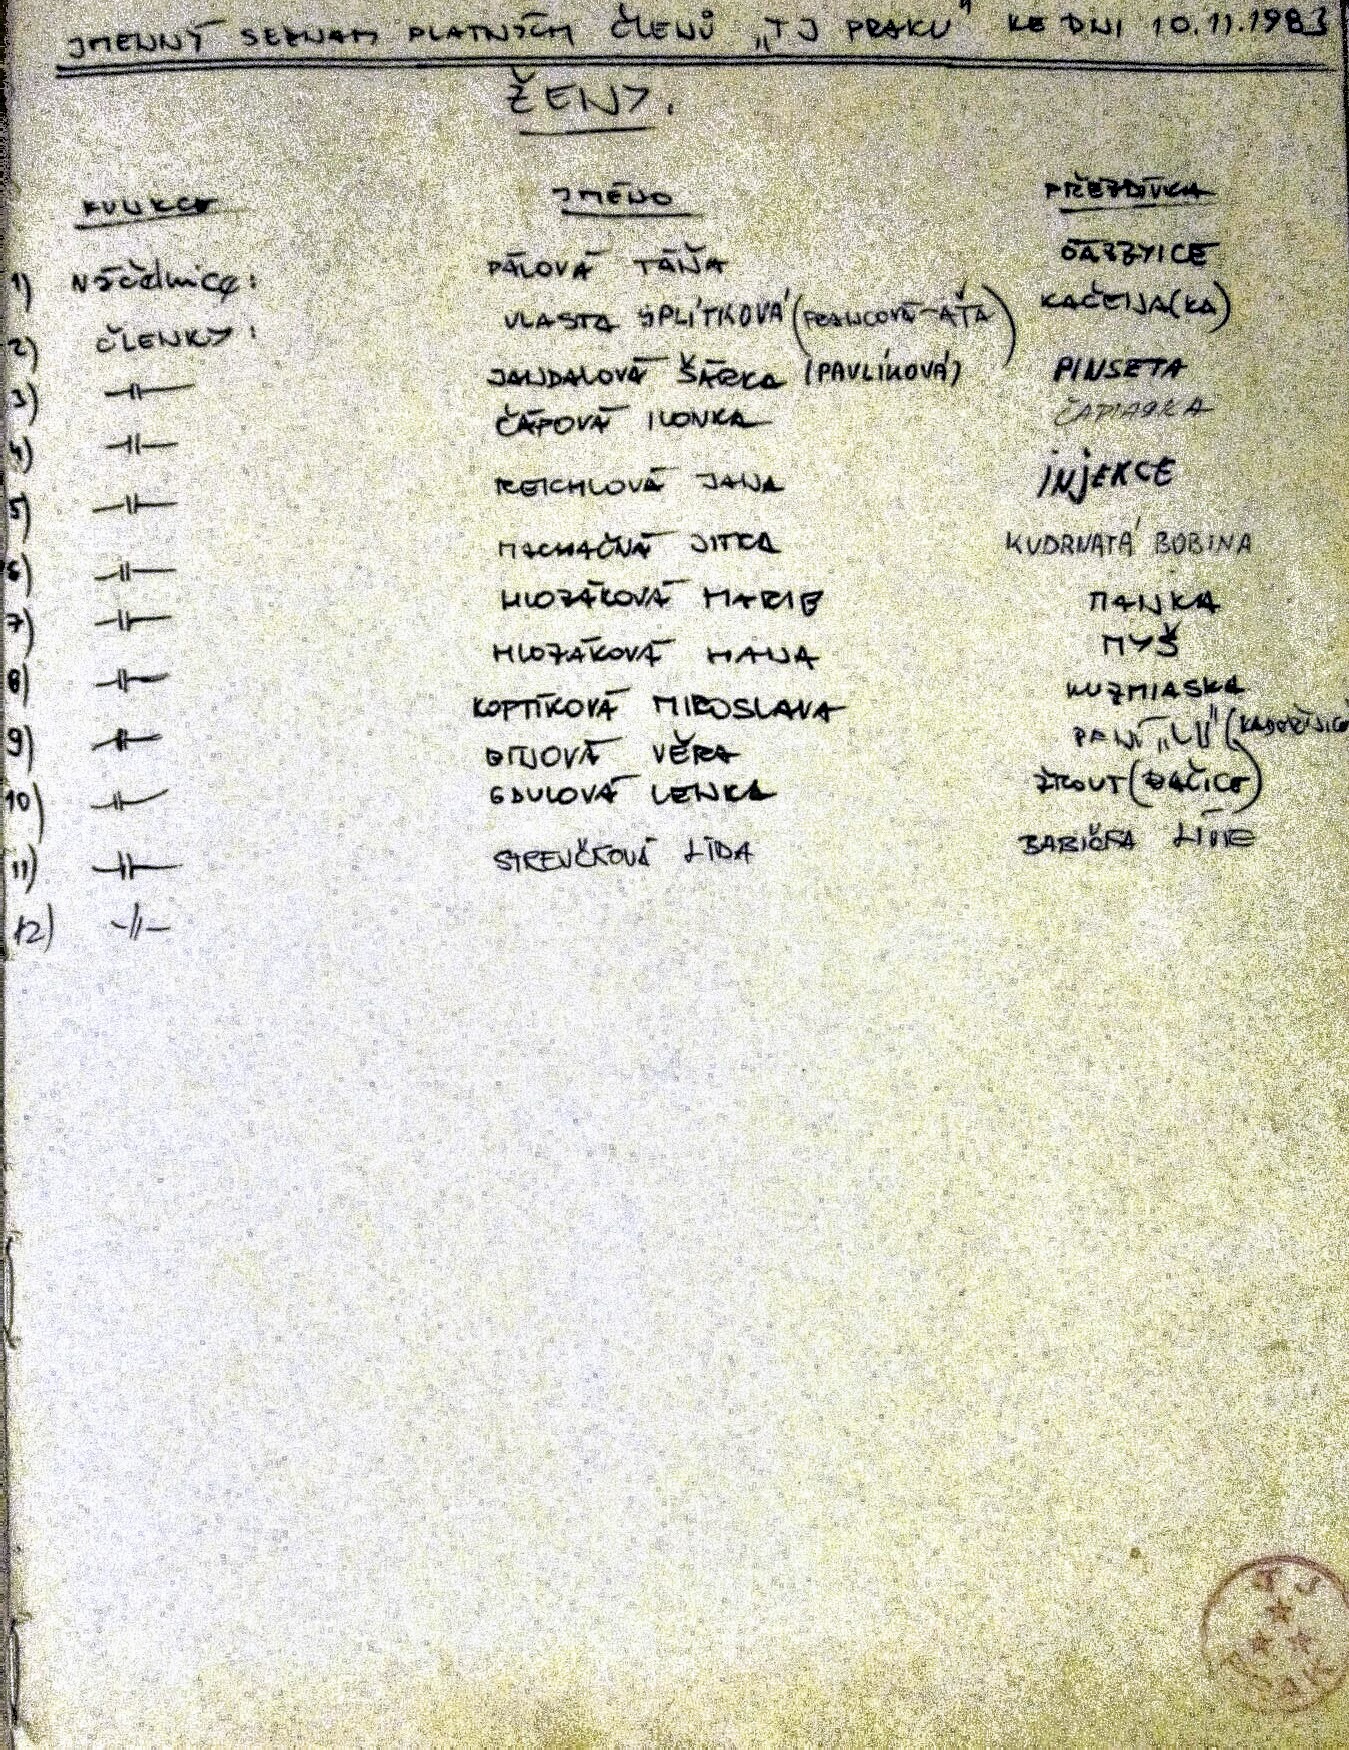 JMENNÝ SEZNAM PLATNÝCH ČLENŮ „TJ PRAKU" KE DNI 10.11.1983
ŽENY.
FUNKCE JMÉNO PŘEZDÍVKA
1) NÁČELNICE: PÁLOVÁ TÁŇA
2) ČLENKY: VLASTA ŠPLÍTKOVÁ (FRANCOVÁ-AŤA) KAČENA(KA)
3) —||— JANDALOVÁ ŠÁRKA (PAVLÍKOVÁ) PINSETA
4) —||— ČÁPOVÁ ILONKA
5) —||— REICHLOVÁ JANA INJEKCE
6) —||— MACHAČNÁ JITKA KUDRNATÁ BOBINA
7) —||— HLOZÁKOVÁ MARIE MANKA
8) —||— HLOZÁKOVÁ HANA MYŠ
9) —||— KOPTÍKOVÁ MIROSLAVA KUZMIASKA
10) —||— VĚRA PANÍ
11) —||— GDULOVÁ LENKA ŽROUT
12) —||— STRENČKOVÁ LÍDA BABIČKA
TJ
PRAK